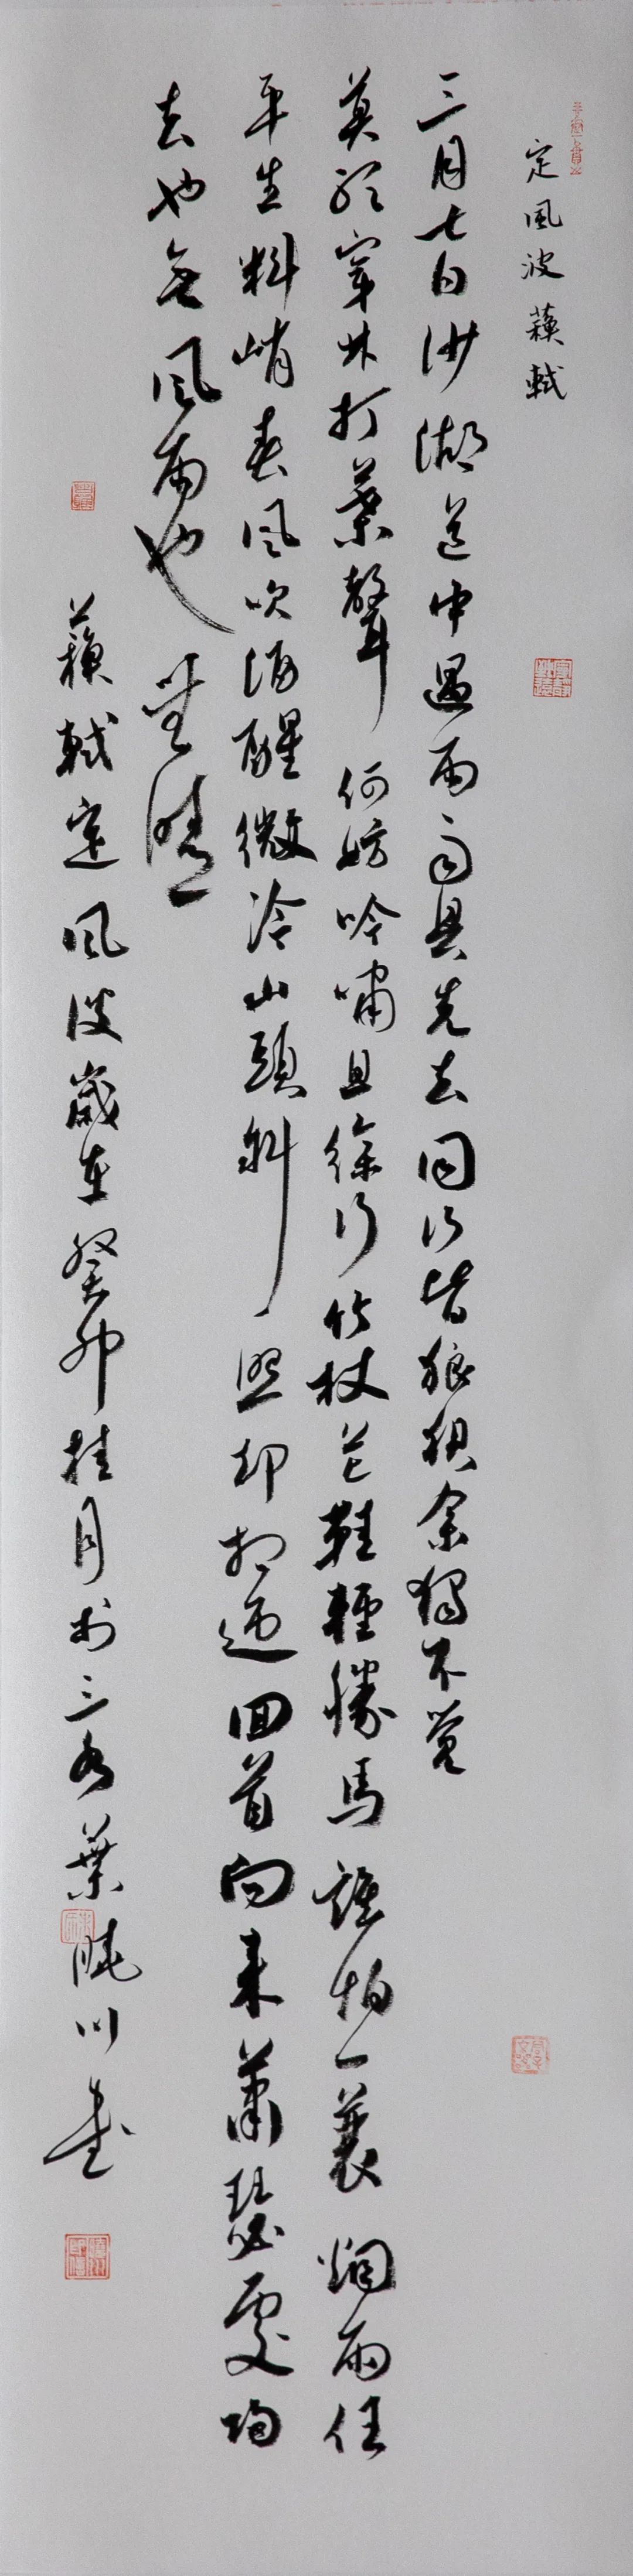 定風波 蘇軾
三月七日沙湖道中遇雨雨具先去同行皆狼狽余獨不覺
莫聽穿林打葉聲何妨吟嘯且徐行竹杖芒鞋輕勝馬誰怕一蓑烟雨任
平生料峭春風吹酒醒微冷山頭斜照却相迎回首向来蕭瑟處歸
去也無風雨也無晴
蘇軾定風波歲在癸卯桂月於三水葉曉川書